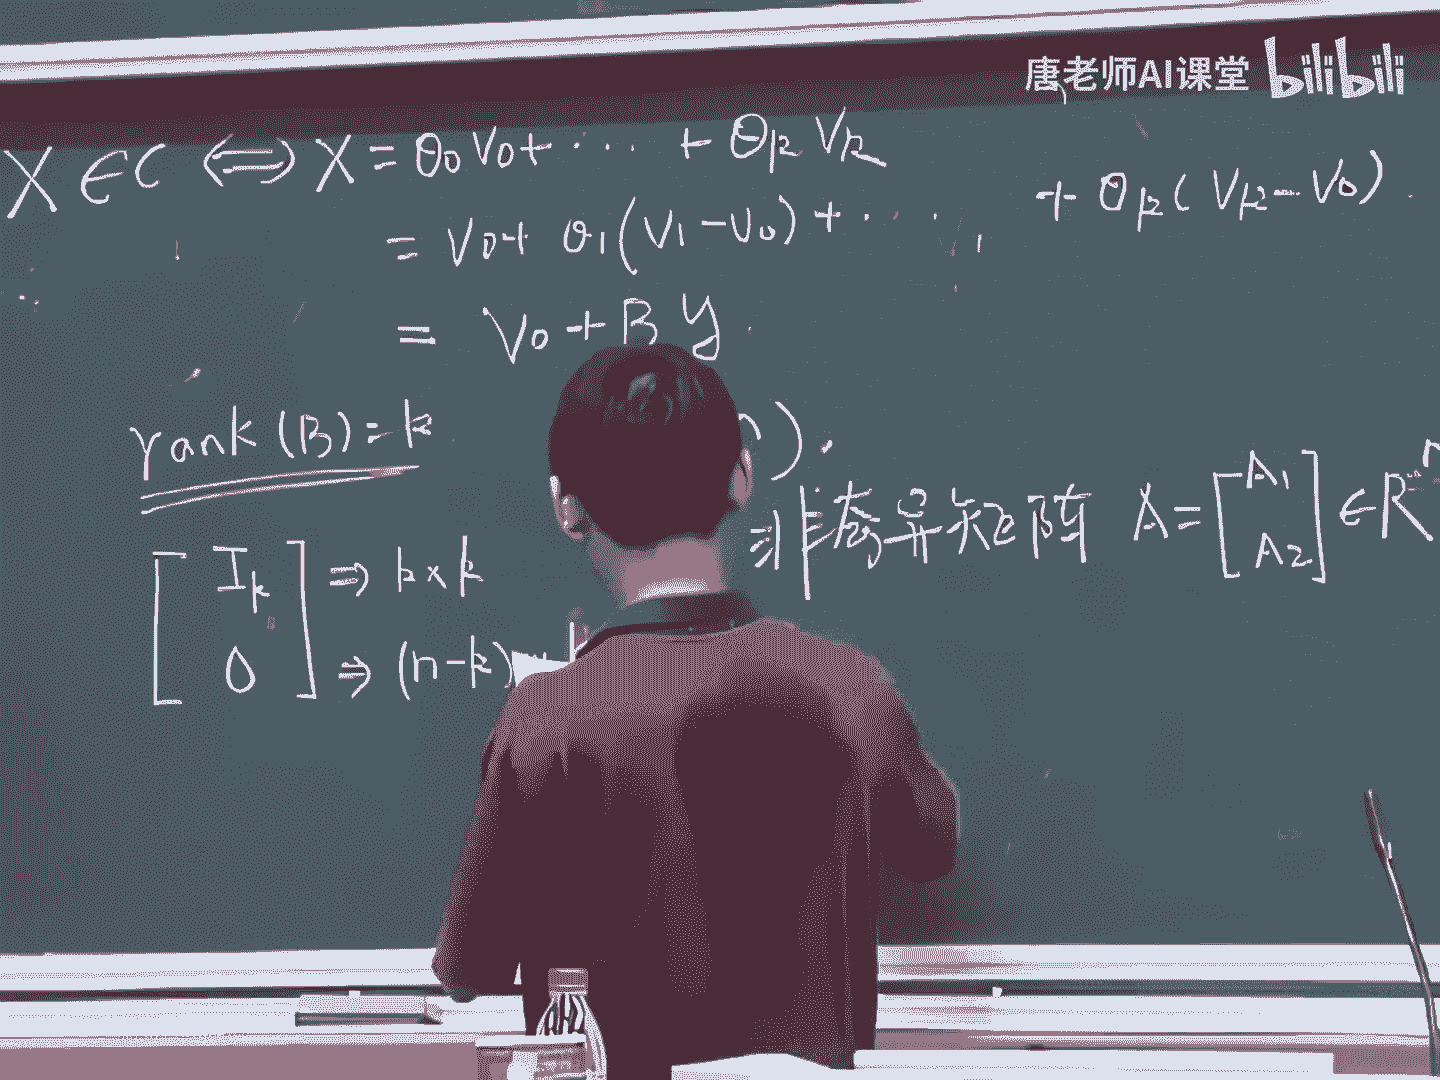 唐老师AI课堂 bilibili
X ∈ C ⟺ X = θ0 V0 + · · · + θk Vk
= V0 + θ1 (V1 - V0) + · · · + θk ( Vk - V0 ) .
= V0 + B y .
rank (B) = k
) .
非奇异矩阵 A = [ A1 A2 ] ∈ R
[ Ik 0 ]
⇒ k × k
⇒ (n - k)